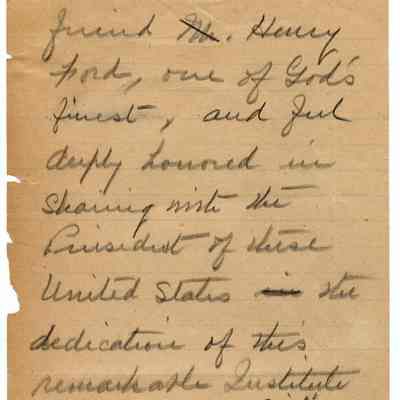 friend Mr. Henry
Ford, one of God's
finest, and feel
deeply honored in
sharing with the
President of these
United States in the
dedication of this
remarkable Institute